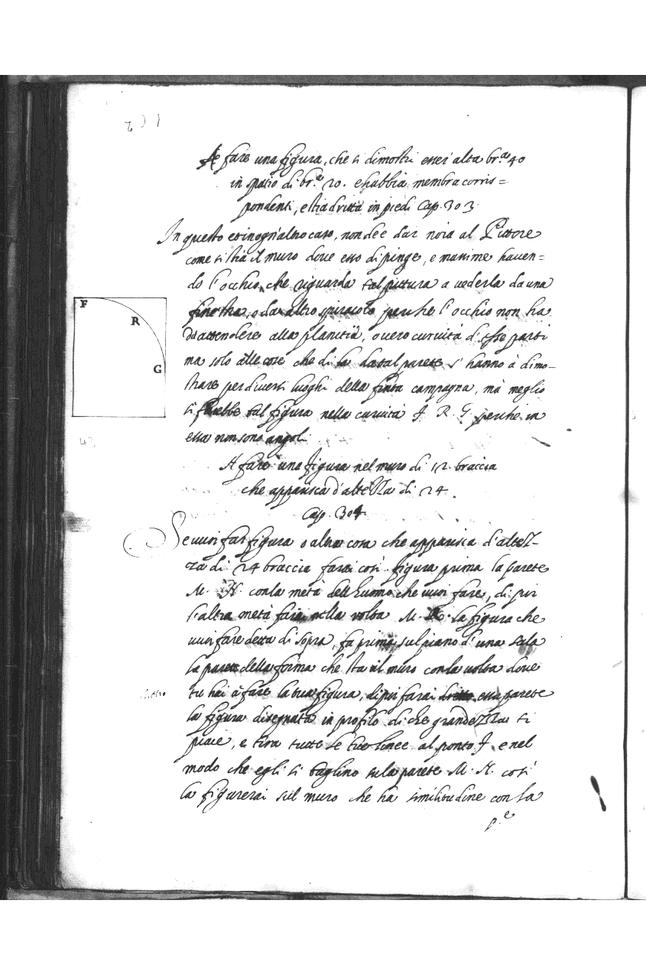 A fare una figura, che si dimostri esser alta br.ª 40
in spatio di br.ª 20. e habbia membra corris=
pondenti, e stia dritta in piedi Cap. 303
In questo et in ogni altro caso, non de e dar noia al Pittore
come si stia il muro dove esso dipinge, e massime haven-
do l'occhio, che riguarda tal pittura a vederla da una
finestra, o da altro spiracolo perche l'occhio non ha
da attendere alla planitia, o vero curvità di esse pareti
ma solo alle cose che di la da tal parete s'hanno à dimo-
strare per diversi luoghi della finta campagna, mà meglio
si farebbe tal figura nella curvità F. R. G. perche in
essa non sono angoli
F
R
G
A fare una figura nel muro di 12 braccia
che apparisca d'altezza di 24.
Cap. 304
Se vuoi far figura o altra cosa che apparisca d'altez-
za di 24 braccia farai così figura prima la parete
M. N. con la metà dell'huomo che vuoi fare, di poi
l'altra metà farai nella volta M. R. la figura che
vuoi fare detta di sopra, fa prima sul piano d'una sala
la parete della forma che sta il muro con la volta dove
tu hai à fare la tua figura, di poi farai dietro essa parete
la figura disegnata in profilo di che grandezza ti
piace, e tira tutte le tue linee al ponto F. e nel
modo che egli si taglino su la parete M. N. cosi
la figurerai sul muro che ha similitudine con la
p.e